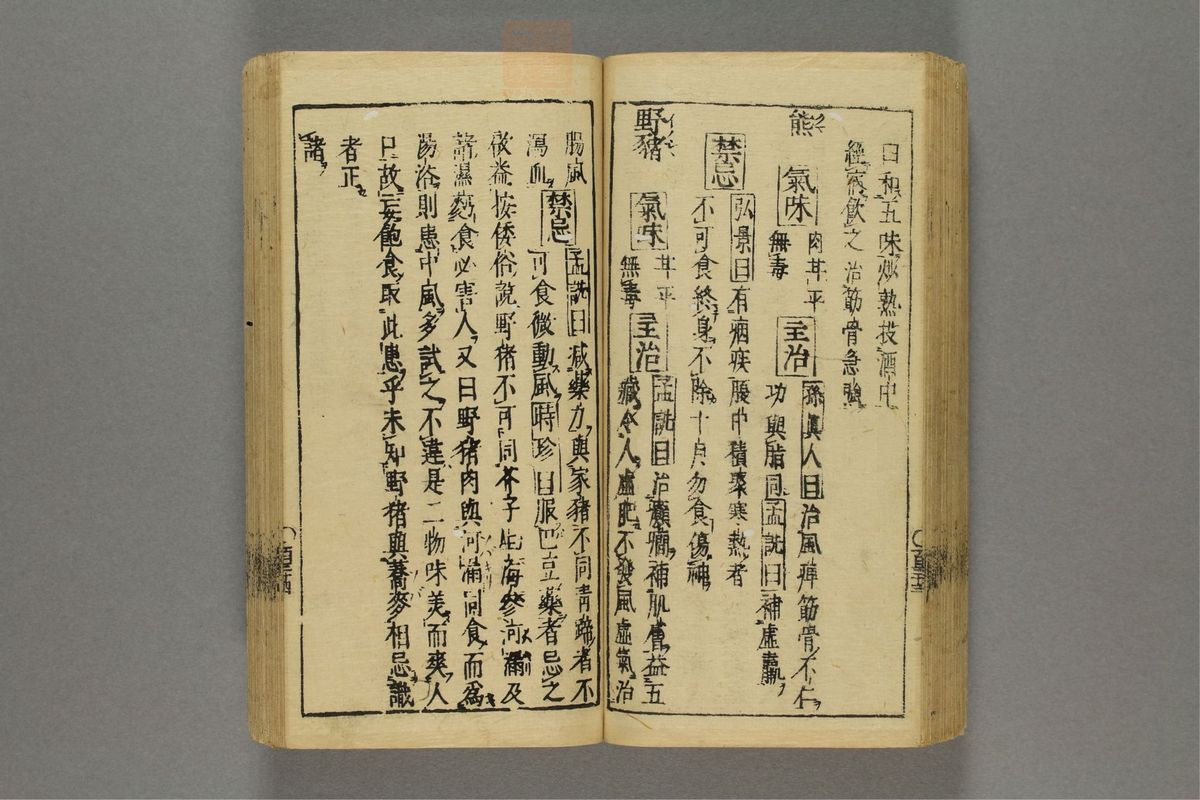 曰和五味炒熟投酒中
經宿飲之 治筋骨急強
熊 クマ
氣味 肉甘平
無毒
主治 孫真人曰治風痺筋骨不仁
功與脂同孟詵曰補虛羸
禁忌 弘景曰有痼疾腹中積聚寒熱者
不可食終身不除十月勿食傷神
野豬
氣味 甘平
無毒
主治 孟詵曰治癲癇補肌膚益五
臟令人虛肥不發風虛氣治
腸風
瀉血
禁忌 孟詵曰減藥力與家豬不同青蹄者不
可食微動風時珍曰服巴豆藥者忌之
啟益按倭俗說野豬不可同芥子生海參河及
諸濕麪食必害人又曰野豬肉與河同食而為
湯浴則患中風多試之不違是二物味美而爽人
口故妄飽食取此患乎未知野豬與蕎麥相忌識
者正
諸
百三十